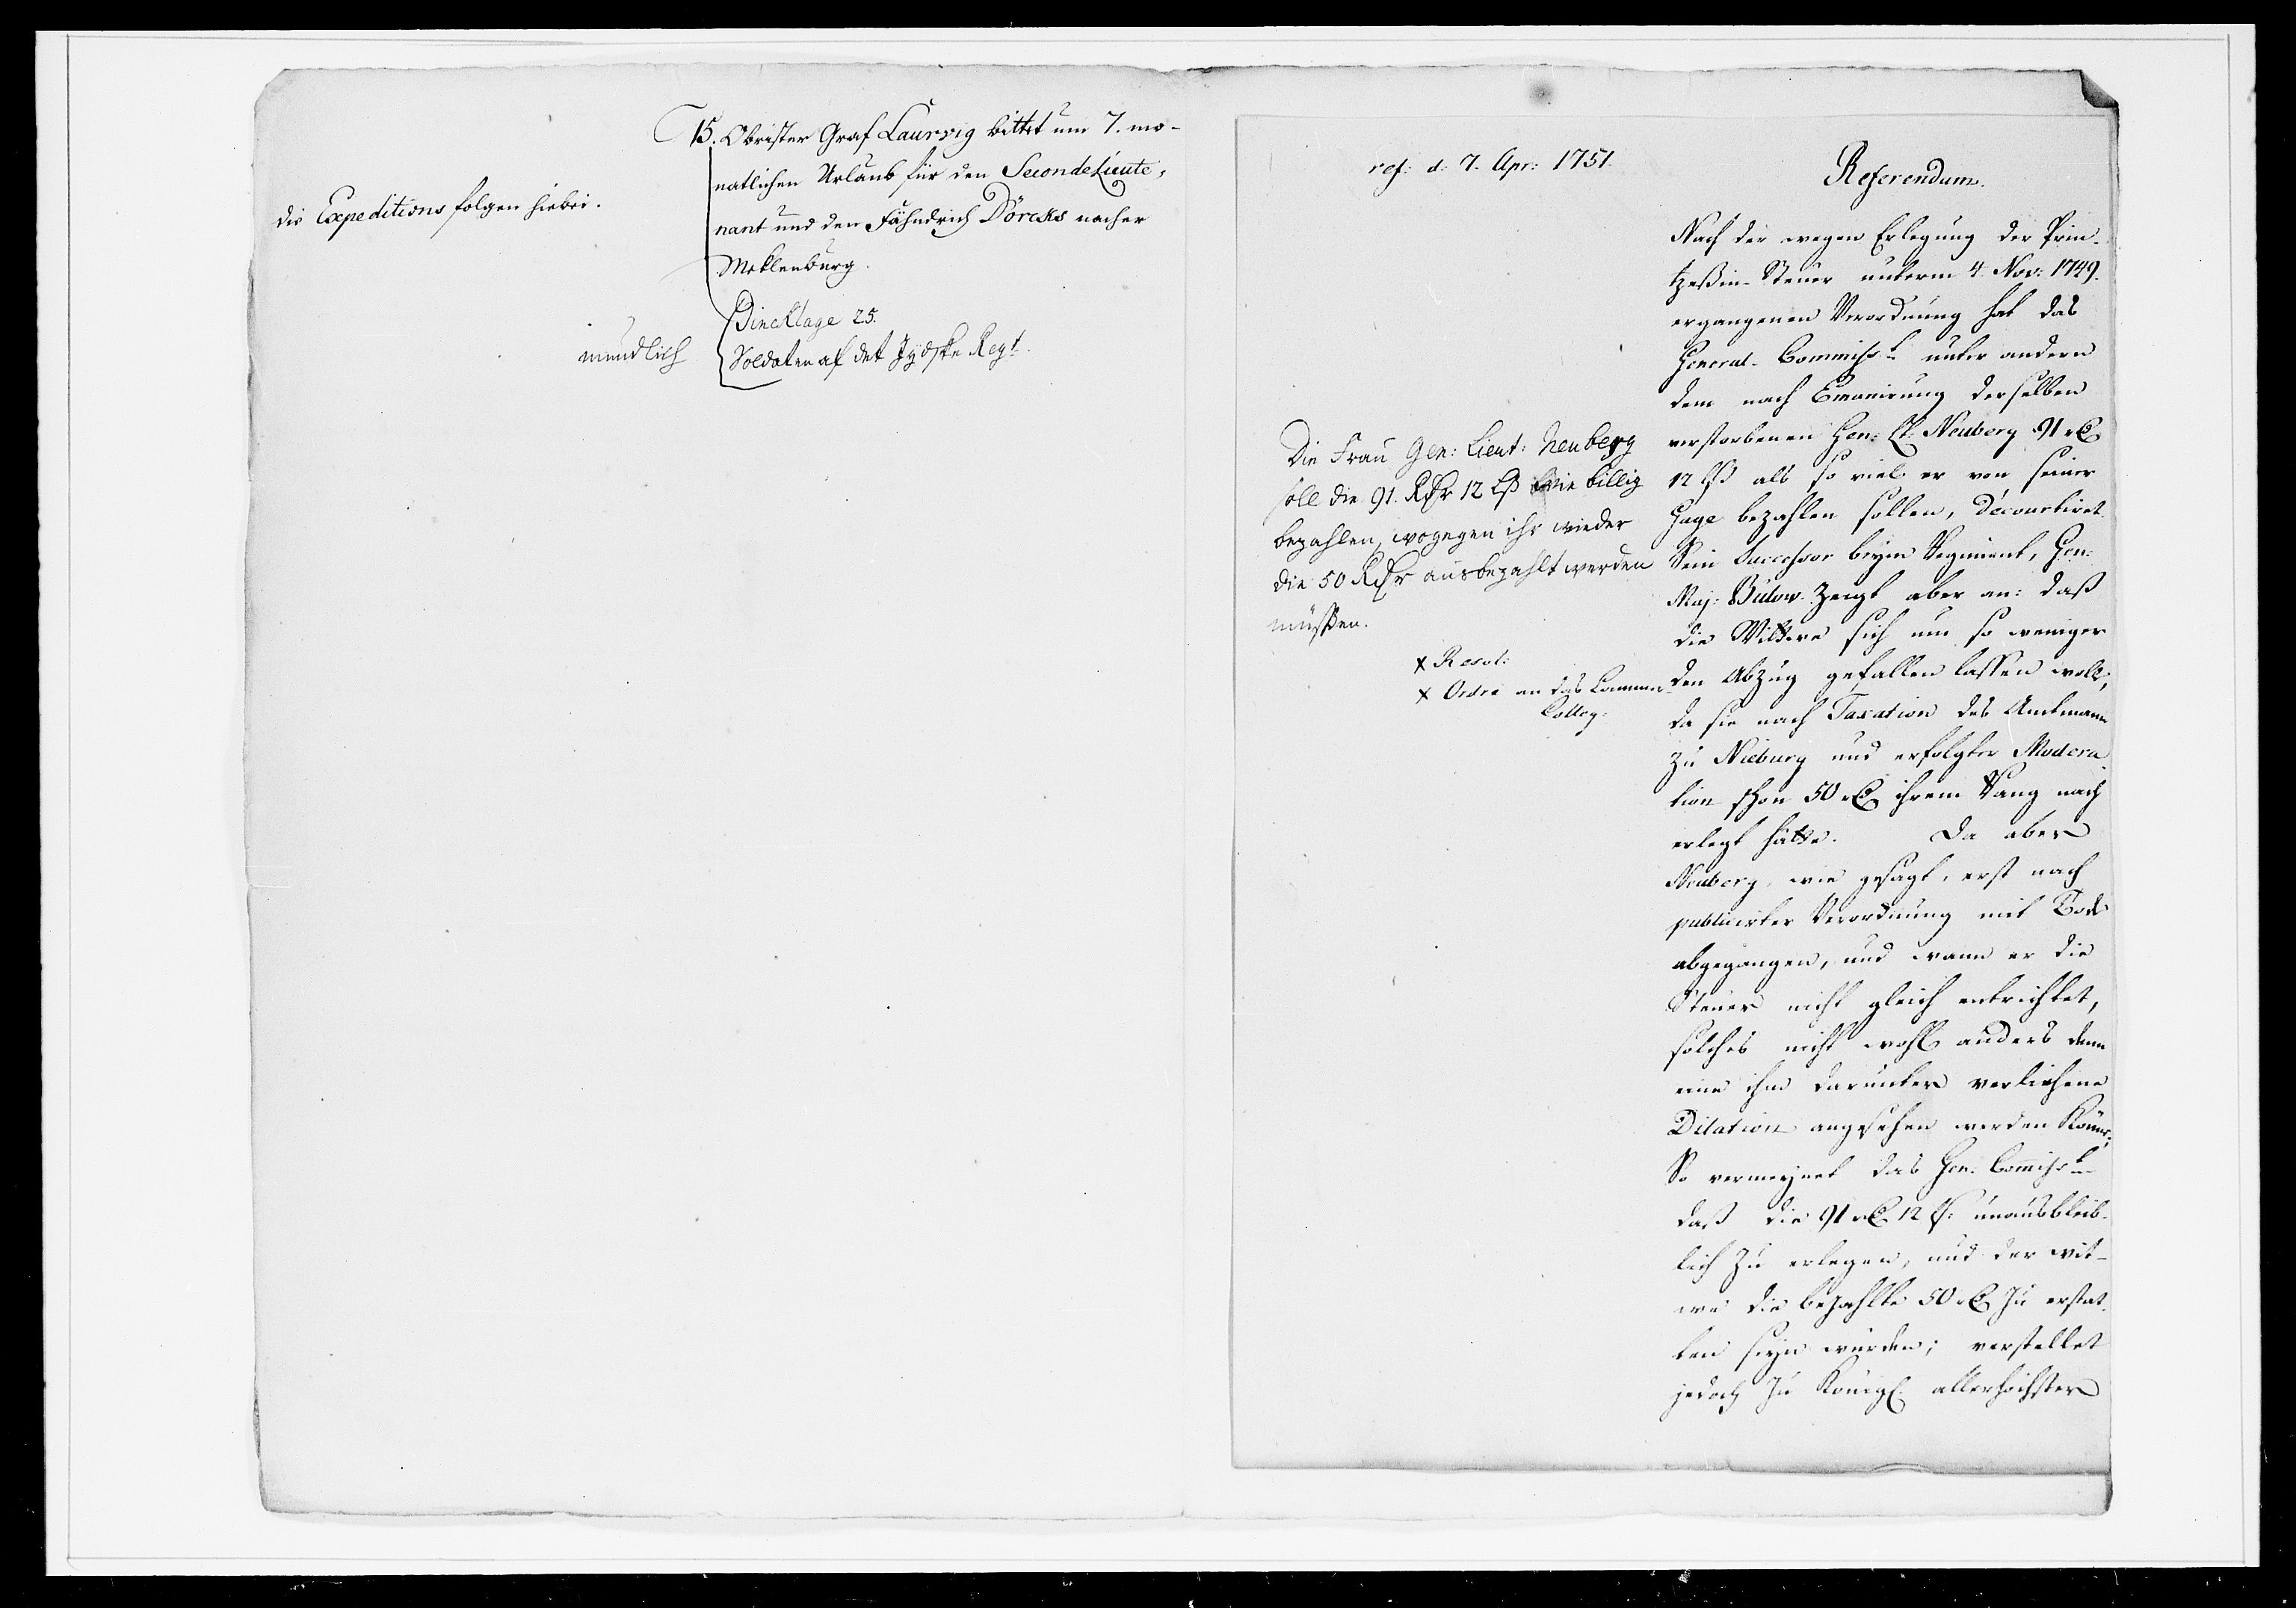 15. Obrister Graf Laurvig bittet um 7. mo-
natlichen Urlaub für den SecondeLieute,
nant und den Fähndrich Döreks nacher
Meklenburg.
die Expeditions folgen hiebei.
Dincklage 25.
Soldaten af det Jydske Regt.
mündlich
ref: d: 7. Apr: 1751.
Referendum.
Nach der wegen Erlegung der Prin-
tzeßin-Steuer unterm 4. Nov: 1749.
ergangenen Verordnung hat das
General-Commisst unter andern
dem nach Emanirung derselben
verstorbenen Gen: Lt: Neuberg 91 Rthlr
12 Lß als so viel er von seiner
Gage bezahlen sollen, décourtiret.
Sein Successor beym Regiment, Gen:
Maj: Bülow zeigt aber an: daß
die Wittwe sich um so weniger
den Abzug gefallen lassen woll,
da sie nach Taxation des Amtmann
zu Nieburg und erfolgter Modera
tion schon 50 Rthlr ihrem Rang nach
erlegt hätte. Da aber
Neuberg, wie gesagt, erst nach
publicirter Verordnung mit Tode
abgegangen, und wann er die
Steuer nicht gleich entrichtet,
solches nicht wohl anders denn
eine ihm darunter verliehene
Dilation angesehen werden könne,
So vermeynet das Gen: Commisst
daß die 91 Rthlr 12 ß: unausbleib-
lich zu erlegen, und der wit-
we die bezahlte 50 Rthlr zu erstat-
ten seyn würden; verstellet
jedoch zu Königl. allerhöchster
Die Frau Gen: Lieut: Neuberg
soll die 91. Rthr 12 Lß wie billig
bezahlen, wogegen ihr wieder
die 50 Rthr ausbezahlt werden
müßen.
x Resol:
x Ordre an das Commer
Colleg: